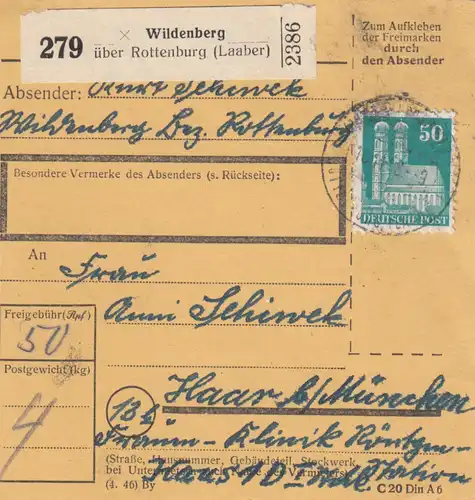 279
× Wildenberg
über Rottenburg (Laaber)
2386
Zum Aufkleben
der Freimarken
durch
den Absender
Absender: Kurt Schiwek
Wildenberg Bez. Rottenburg
50
DEUTSCHE POST
Besondere Vermerke des Absenders (s. Rückseite):
An
Frau
Anni Schiwek
Freigebühr (Rpf)
50
Postgewicht (kg)
4
Haar b/München
13b
Frauen-Klinik Röntgen-
(Straße, Hausnummer, Gebäudeteil, Stockwerk
Haus Station
(4. 46) By
C 20 Din A 6